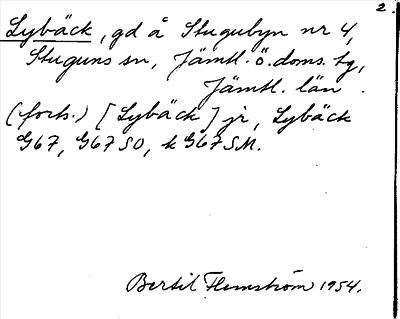 2.
Lybäck, gd å Stugubyn nr 4,
Stuguns sn, Jämtl. ö. doms. tg,
Jämtl. län.
(forts.) [Lybäck] jr, Lybäck
G67, G67 SO, k G67 SM.
Bertil Flemström 1954.